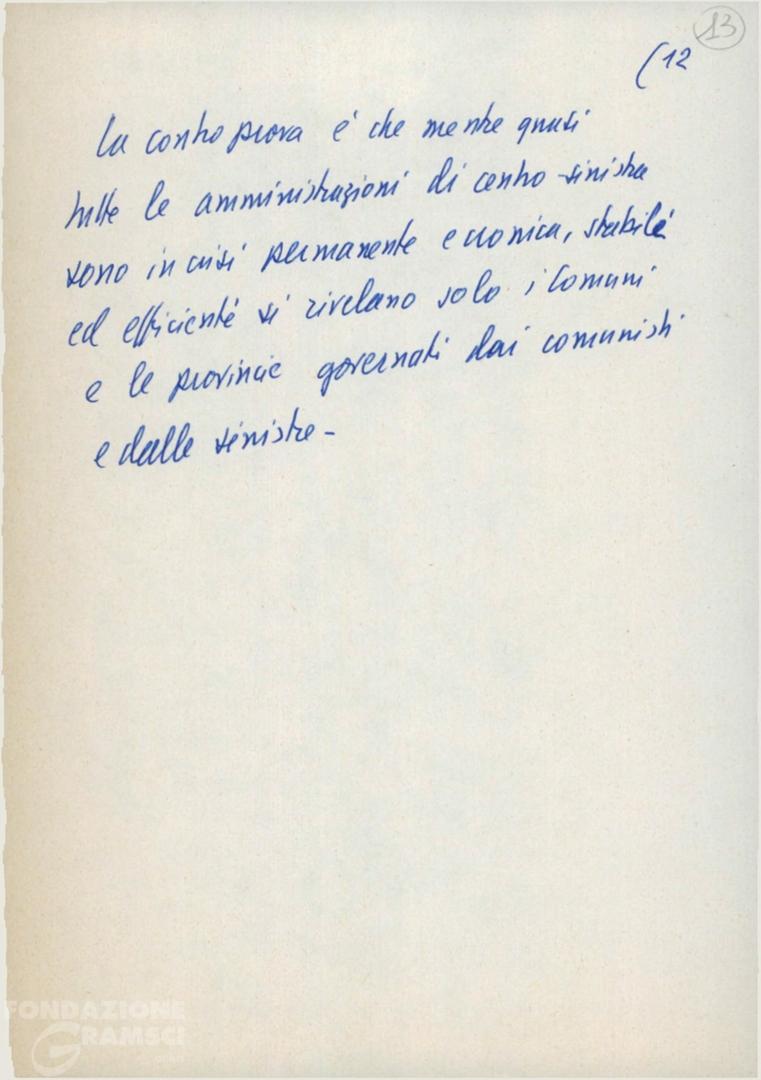 13
(12
La controprova è che mentre quasi
tutte le amministrazioni di centro-sinistra
sono in crisi permanente e cronica, stabili
ed efficienti si rivelano solo i Comuni
e le provincie governati dai comunisti
e dalle sinistre -
FONDAZIONE
GRAMSCI